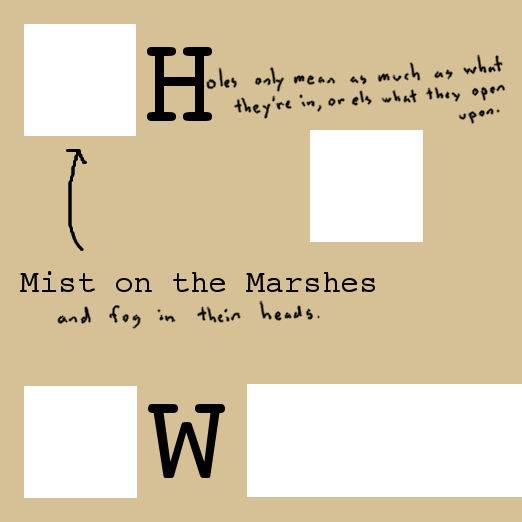 Holes only mean as much as what
they're in, or els what they open
upon.
Mist on the Marshes
and fog in their heads.
W